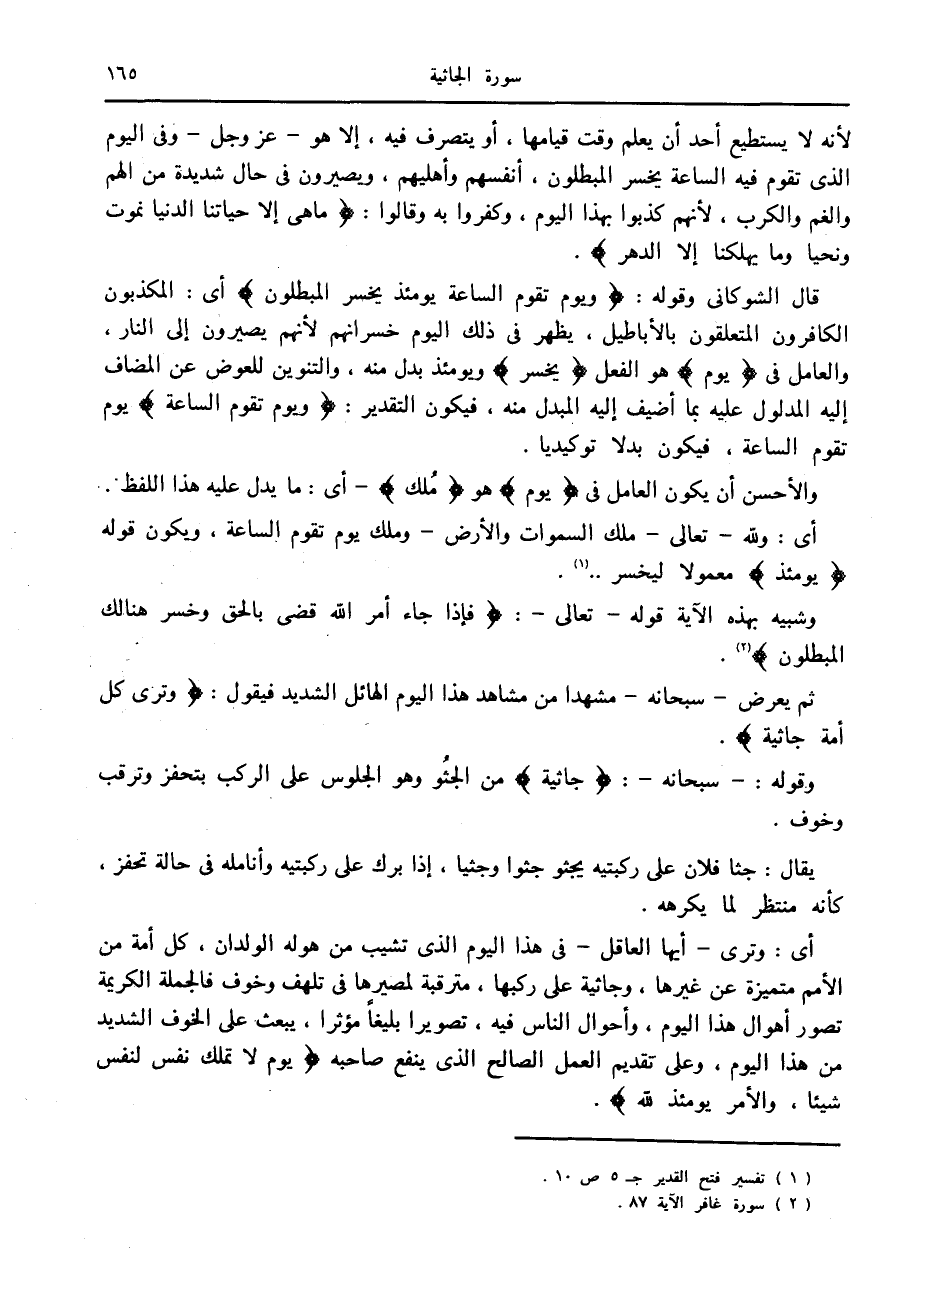 سورة الجاثية ١٦٥
لأنه لا يستطيع أحد أن يعلم وقت قيامها ، أو يتصرف فيه ، إلا هو – عز وجل – وفى اليوم
الذى تقوم فيه الساعة يخسر المبطلون ، أنفسهم وأهليهم ، ويصيرون فى حال شديدة من الهم
والغم والكرب ، لأنهم كذبوا بهذا اليوم ، وكفروا به وقالوا : ﴿ ماهى إلا حياتنا الدنيا نموت
ونحيا وما يهلكنا إلا الدهر ﴾ .
قال الشوكانى وقوله : ﴿ ويوم تقوم الساعة يومئذ يخسر المبطلون ﴾ أى : المكذبون
الكافرون المتعلقون بالأباطيل ، يظهر فى ذلك اليوم خسرانهم لأنهم يصيرون إلى النار ،
والعامل فى ﴿ يوم ﴾ هو الفعل ﴿ يخسر ﴾ ويومئذ بدل منه ، والتنوين للعوض عن المضاف
إليه المدلول عليه بما أضيف إليه المبدل منه ، فيكون التقدير : ﴿ ويوم تقوم الساعة ﴾ يوم
تقوم الساعة ، فيكون بدلا توكيديا .
والأحسن أن يكون العامل فى ﴿ يوم ﴾ هو ﴿ مُلك ﴾ – أى : ما يدل عليه هذا اللفظ ..
أى : ولله – تعالى – ملك السموات والأرض – وملك يوم تقوم الساعة ، ويكون قوله
﴿ يومئذ ﴾ معمولا ليخسر ..(١) .
وشبيه بهذه الآية قوله – تعالى – : ﴿ فإذا جاء أمر الله قضى بالحق وخسر هنالك
المبطلون ﴾(٢) .
ثم يعرض – سبحانه – مشهدا من مشاهد هذا اليوم الهائل الشديد فيقول : ﴿ وترى كل
أمة جاثية ﴾ .
وقوله : – سبحانه – : ﴿ جاثية ﴾ من الجثُو وهو الجلوس على الركب بتحفز وترقب
وخوف .
يقال : جثا فلان على ركبتيه يجثو جثوا وجثيا ، إذا برك على ركبتيه وأنامله فى حالة تحفز ،
كأنه منتظر لما يكرهه .
أى : وترى – أيها العاقل – فى هذا اليوم الذى تشيب من هوله الولدان ، كل أمة من
الأمم متميزة عن غيرها ، وجاثية على ركبها ، مترقبة لمصيرها فى تلهف وخوف فالجملة الكريمة
تصور أهوال هذا اليوم ، وأحوال الناس فيه ، تصويرا بليغاً مؤثرا ، يبعث على الخوف الشديد
من هذا اليوم ، وعلى تقديم العمل الصالح الذى ينفع صاحبه ﴿ يوم لا تملك نفس لنفس
شيئا ، والأمر يومئذ لله ﴾ .
( ١ ) تفسير فتح القدير جـ ٥ ص ١٠ .
( ٢ ) سورة غافر الآية ٨٧ .